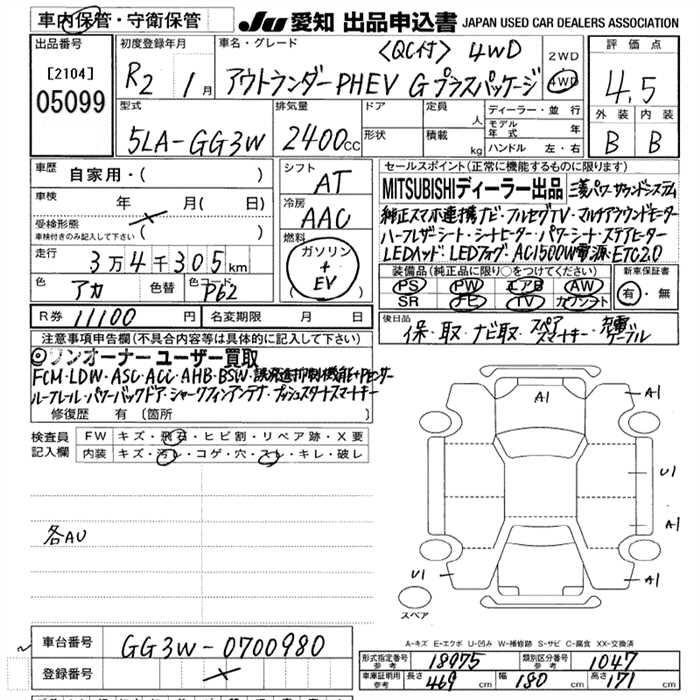 車内保管・守衛保管
JU 愛知 出品申込書 JAPAN USED CAR DEALERS ASSOCIATION
出品番号
[2104]
05099
初度登録年月
R2 1月
車名・グレード
〈QC付〉 4WD
アウトランダーPHEV Gプラスパッケージ
2WD
4WD
評価点
4.5
外装 内装
B B
型式
5LA-GG3W
排気量
2400cc
ドア
形状
定員 人
積載 kg
ディーラー・並行
モデル年式 年
ハンドル 左・右
車歴
自家用・( )
車検 年 月( 日)
受検形態
車検付きのみ記入して下さい ( )
走行
3万4千305km
色 アカ 色替 色コード P62
シフト
AT
冷房
AAC
燃料
ガソリン
+
EV
R券 11100 円 名変期限 月 日
セールスポイント(正常に機能するものに限ります)
MITSUBISHIディーラー出品 三菱パワーサウンドシステム
純正スマホ連携ナビ・フルセグTV・マルチアラウンドモニター
ハーフレザーシート・シートヒーター・パワーシート・ステアヒーター
LEDヘッド・LEDフォグ・AC1500W電源・ETC2.0
装備品(純正品に限り○をつけてください)
PS PW エアB AW
SR ナビ TV カワシート
新車保証書
有・無
後日品
保・取・ナビ取・スペアスマートキー・充電ケーブル
注意事項申告欄(不具合内容等は具体的に記入して下さい)
◎ワンオーナー ユーザー買取
FCM・LDW・ASC・ACC・AHB・BSW・誤発進抑制機能+Pセンサー
ルーフレール・パワーバックドア・シャークフィンアンテナ・プッシュスタートスマートキー
修復歴 有(箇所 )
検査員記入欄
FW キズ・飛石・ヒビ割・リペア跡・X要
内装 キズ・汚レ・コゲ・穴・スレ・キレ・破レ
各AU
A1
A1
U1
A1
U1
A1
A1
スペア
A-キズ E-エクボ U-凹み W-補修跡 S-サビ C-腐食 XX-交換済
車台番号 GG3W-0700980
登録番号
形式指定番号 参考 18975 類別区分番号 参考 1047
車庫証明用 参考 長さ 469 cm 幅 180 cm 高さ 171 cm